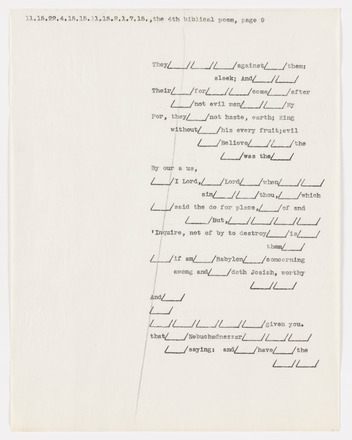 11.15.22.4.15.15.11.15.2.1.7.15.,the 4th biblical poem, page 9
They/____/____/____/against/____/them:
sleek; And/____/____/
Their/____/for/____/____/come/____/after
/____/not evil men/____/____/My
For, they/____/not haste, earth; King
without/____/his every fruit;evil
/____/Believe/____/____/the
/____/was the/____/
By our a us,
/____/I Lord,/____/Lord/____/when/____/____/
sim/____/____/thou,/____/which
/____/said the do for place,/____/of and
/____/But,/____/____/____/____/
'Inquire, not of by to destroy/____/is/____/
them/____/
/____/if am/____/Babylon/____/concerning
among and/____/doth Josiah, worthy
/____/____/
And/____/
/____/
/____/____/____/____/____/given you.
that/____/Nebuchadnezzar/____/____/____/
/____/saying: and/____/have/____/the
/____/____/